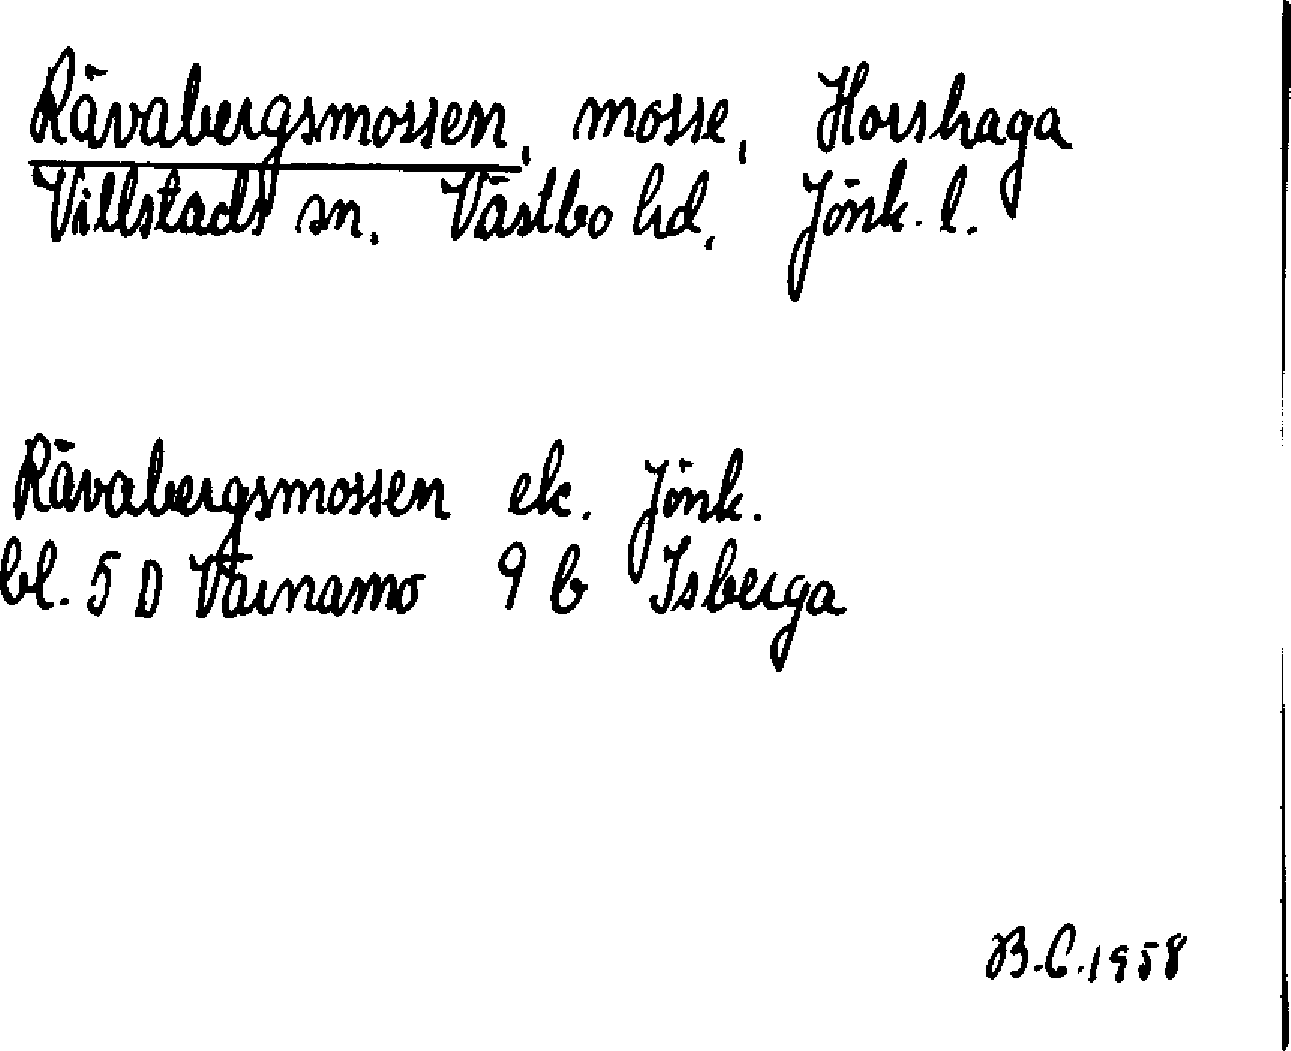 Rävabergsmossen, mosse, Horshaga
Villstads sn. Västbo hd, Jönk. l.
Rävabergsmossen ek. Jönk.
bl. 5 D Värnamo 9 b Isberga
B.C. 1958